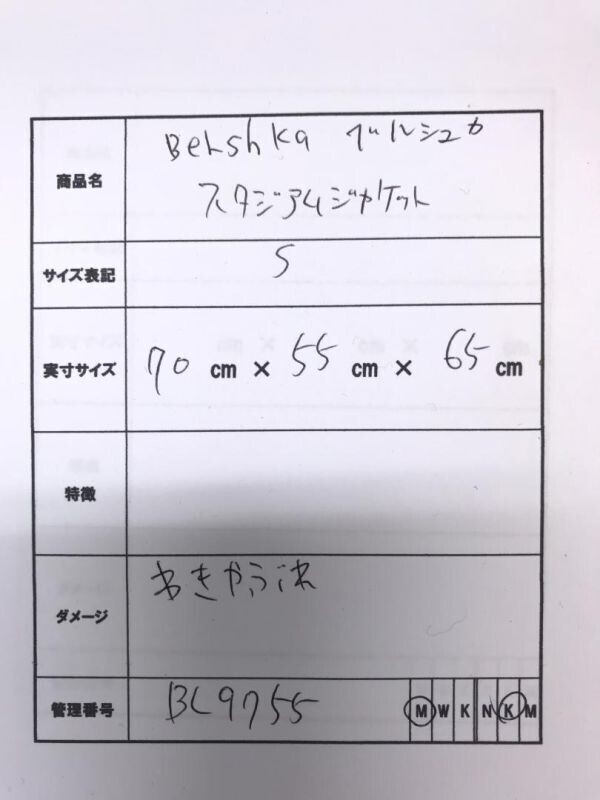 商品名 Belshka ベルシュカ
スタジアムジャケット
サイズ表記 S
実寸サイズ 70 cm × 55 cm × 65 cm
特徴
ダメージ わきやぶれ
管理番号 BC9755 M W K N K M